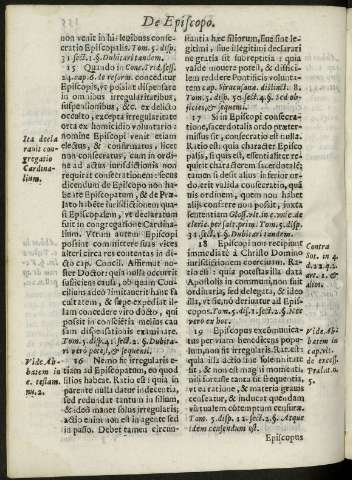 De Episcopo.
non venit in his legibus conse-
cratio Episcopalis. Tom. 5. disp.
31 sect. 1. §. Dubitari tandem.
15 Quando in Conc. Trid. sess.
24. cap. 6. de reform. conceditur
Episcopis, vt possint dispensare
in omnibus irregularitatibus,
suspensionibus, &c. ex delicto
occulto, excepta irregularitate
orta ex homicidio voluntario
nomine Episcopi venit etiam
electus, & confirmatus, licet
non consecratus, cum in ordi-
ne ad actus iurisdictionis non
requirat consecrationem: secus
dicendum de Episcopo non ha-
bente Episcopatum, & de Præ-
lato habente iurisdictionem qua-
si Episcopalem, vt declaratum
fuit in congregatione Cardina-
lium. Vtrum autem Episcopi
possint committere suas vices
alteri circa res contentas in di-
cto cap. Concil. Affirmat no-
ster Doctor: quia nulla occurrit
sufficiens causa, ob quam Conci-
lium adeo limitaverit hanc fa-
cultatem, & sæpe expediat il-
lam concedere viro docto, qui
possit in conscientia melius cau-
sam dispensationis examinare.
Tom. 5. disp. 41. sect. 2. §. Dubita-
ri vero potest, & sequenti.
16 Non fit irregularis e-
tiam ad Episcopatum, eo quod
filios habeat. Ratio est: quia in
parente nulla datur indecentia,
sed redundat tantum in filium,
& ideo manet solus irregularis;
actio enim non est actio nisi
in passo. Debet tamen circun-
stantia hæc filiorum, sive sint le-
gitimi, sive illegitimi declarari
ne gratia sit subreptitia: quia
valde movere potest, & diffici-
lem reddere Pontificis voluntatem
cap. Siracusana. distinct. 28.
Tom. 5. disp. 50. sect. 4. §. Sed ob-
sicies, & sequenti.
17 Si in Episcopi consecra-
tione, sacerdotalis ordo præter-
missus sit, consecratio est nulla.
Ratio est: quia character Episco-
palis, si quis est, essentialiter re-
quirit characterem sacerdotale;
tamen si desit alius inferior or-
do, erit valida consecratio, qua
nis ordinem, quem non habet
alijs conferre non possit, iuxta
sententiam Gloss. vlt. in c. vnic. de
cleric. per salt. prim. Tom. 5. disp.
31. sect. 1. §. Dubitari tandem.
18 Episcopi non recipiunt
immediate à Christo Domino
iurisdictionem exercitam. Ra-
tio est: quia potestas illa data
Apostolis in communi, non fuit
ordinaria, sed delegata, & ideo
illa, vt sic, nō derivatur ad Epis-
copos. Tom. 5. dis. 2. sect. 2. §. Nec
vero ex hoc.
19 Episcopus excōmunica-
tus per viam benediceus popu-
lum, non fit irregularis. Rat. est:
quia illa actio non est solemni-
tate fit, & non est magni momenti,
nisi fortasse tanta sit frequentia,
vt ex ratione, & materia gravis
censeatur, & inducat quendam
virtualem cōtemptum censuræ.
Tom. 5. disp. 12. sect. 2. §. Atque
idem censendum est.
Episcopus
Ita decla
ravit con-
gregatio
Cardina-
lium.
Vide Ab-
batem in
c. testam.
nu. 2.
Contra
Sot. in 4.
d. 22. q. 2.
art. 1. &
alios.
Vide Ab.
batem in
cap. vlt.
de excess.
Prælat. n.
5.